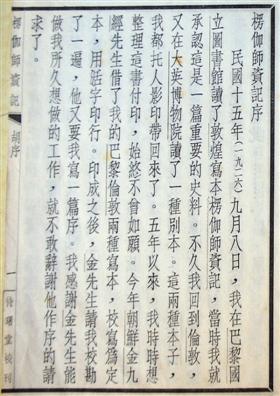 楞伽師資記序
民國十五年(一九二六)九月八日，我在巴黎國
立圖書館讀了敦煌寫本楞伽師資記，當時我就
承認這是一篇重要的史料。不久我回到倫敦，
又在大英博物院讀了一種別本。這兩種本子，
我都托人影印帶回來了。五年以來，我時時想
整理這書付印，始終不曾如願。今年朝鮮金九
經先生借了我的巴黎倫敦兩種寫本，校寫為定
本，用活字印行。印成之後，金先生請我校勘
了一遍，他又要我寫一篇序。我感謝金先生能
做我所久想做的工作，就不敢辭謝他作序的請
求了。
楞伽師資記　胡序　一　待曙堂校刊